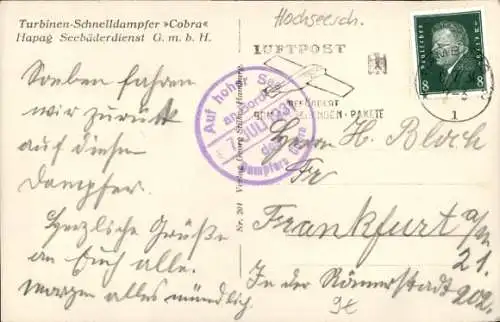 Turbinen-Schnelldampfer »Cobra«
Hapag Seebäderdienst G. m. b. H.
Hochseesch.
Soeben fahren
wir zurück
auf diesem
Dampfer.
Herzliche Grüße
an Euch alle.
Morgen alles mündlich.
Nr. 201 Verlag Georg Stilke, Hamburg
Auf hoher See
an Bord
7. JULI 193
des
Dampfers Cobra
LUFTPOST
BEFÖRDERT
PAKETE
DEUTSCHES REICH
8 8
1
Herrn H. Bloch
Fr
Frankfurt a/M
21.
In der Römerstadt 202.